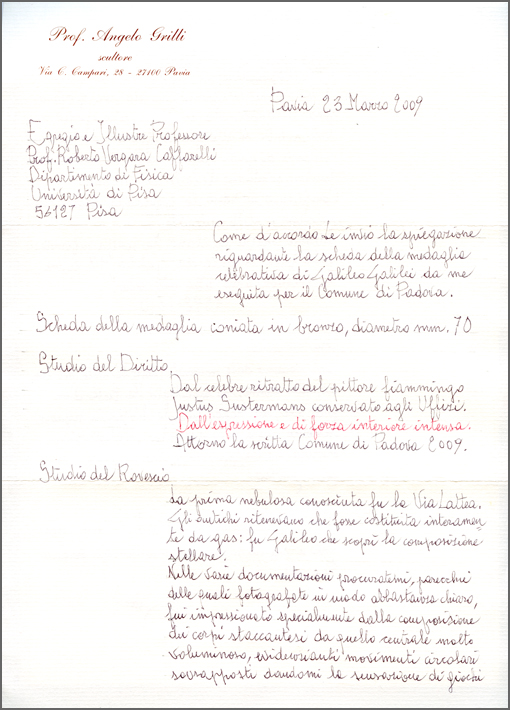 Prof. Angelo Grilli
scultore
Via C. Campari, 28 - 27100 Pavia
Pavia 23 Marzo 2009
Egregio e Illustre Professore
Prof. Roberto Vergara Caffarelli
Dipartimento di Fisica
Università di Pisa
56127 Pisa
Come d'accordo Le invio la spiegazione
riguardante la scheda della medaglia
celebrativa di Galileo Galilei da me
eseguita per il Comune di Padova.
Scheda della medaglia coniata in bronzo, diametro mm. 70
Studio del Diritto
Dal celebre ritratto del pittore fiammingo
Justus Sustermans conservato agli Uffizi.
Dall'espressione e di forza interiore intensa.
Attorno la scritta Comune di Padova 2009.
Studio del Rovescio
La prima nebulosa conosciuta fu la Via Lattea.
Gli antichi ritenevano che fosse costituita interamen=
te da gas: fu Galileo che scoprì la composizione
stellare.
Nelle varie documentazioni procuratemi, parecchie
delle quali fotografate in modo abbastanza chiaro,
fui impressionato specialmente dalla composizione
dei corpi staccantesi da quello centrale molto
voluminoso, evidenzianti movimenti circolari
sovrapposti dandomi la sensazione di giochi